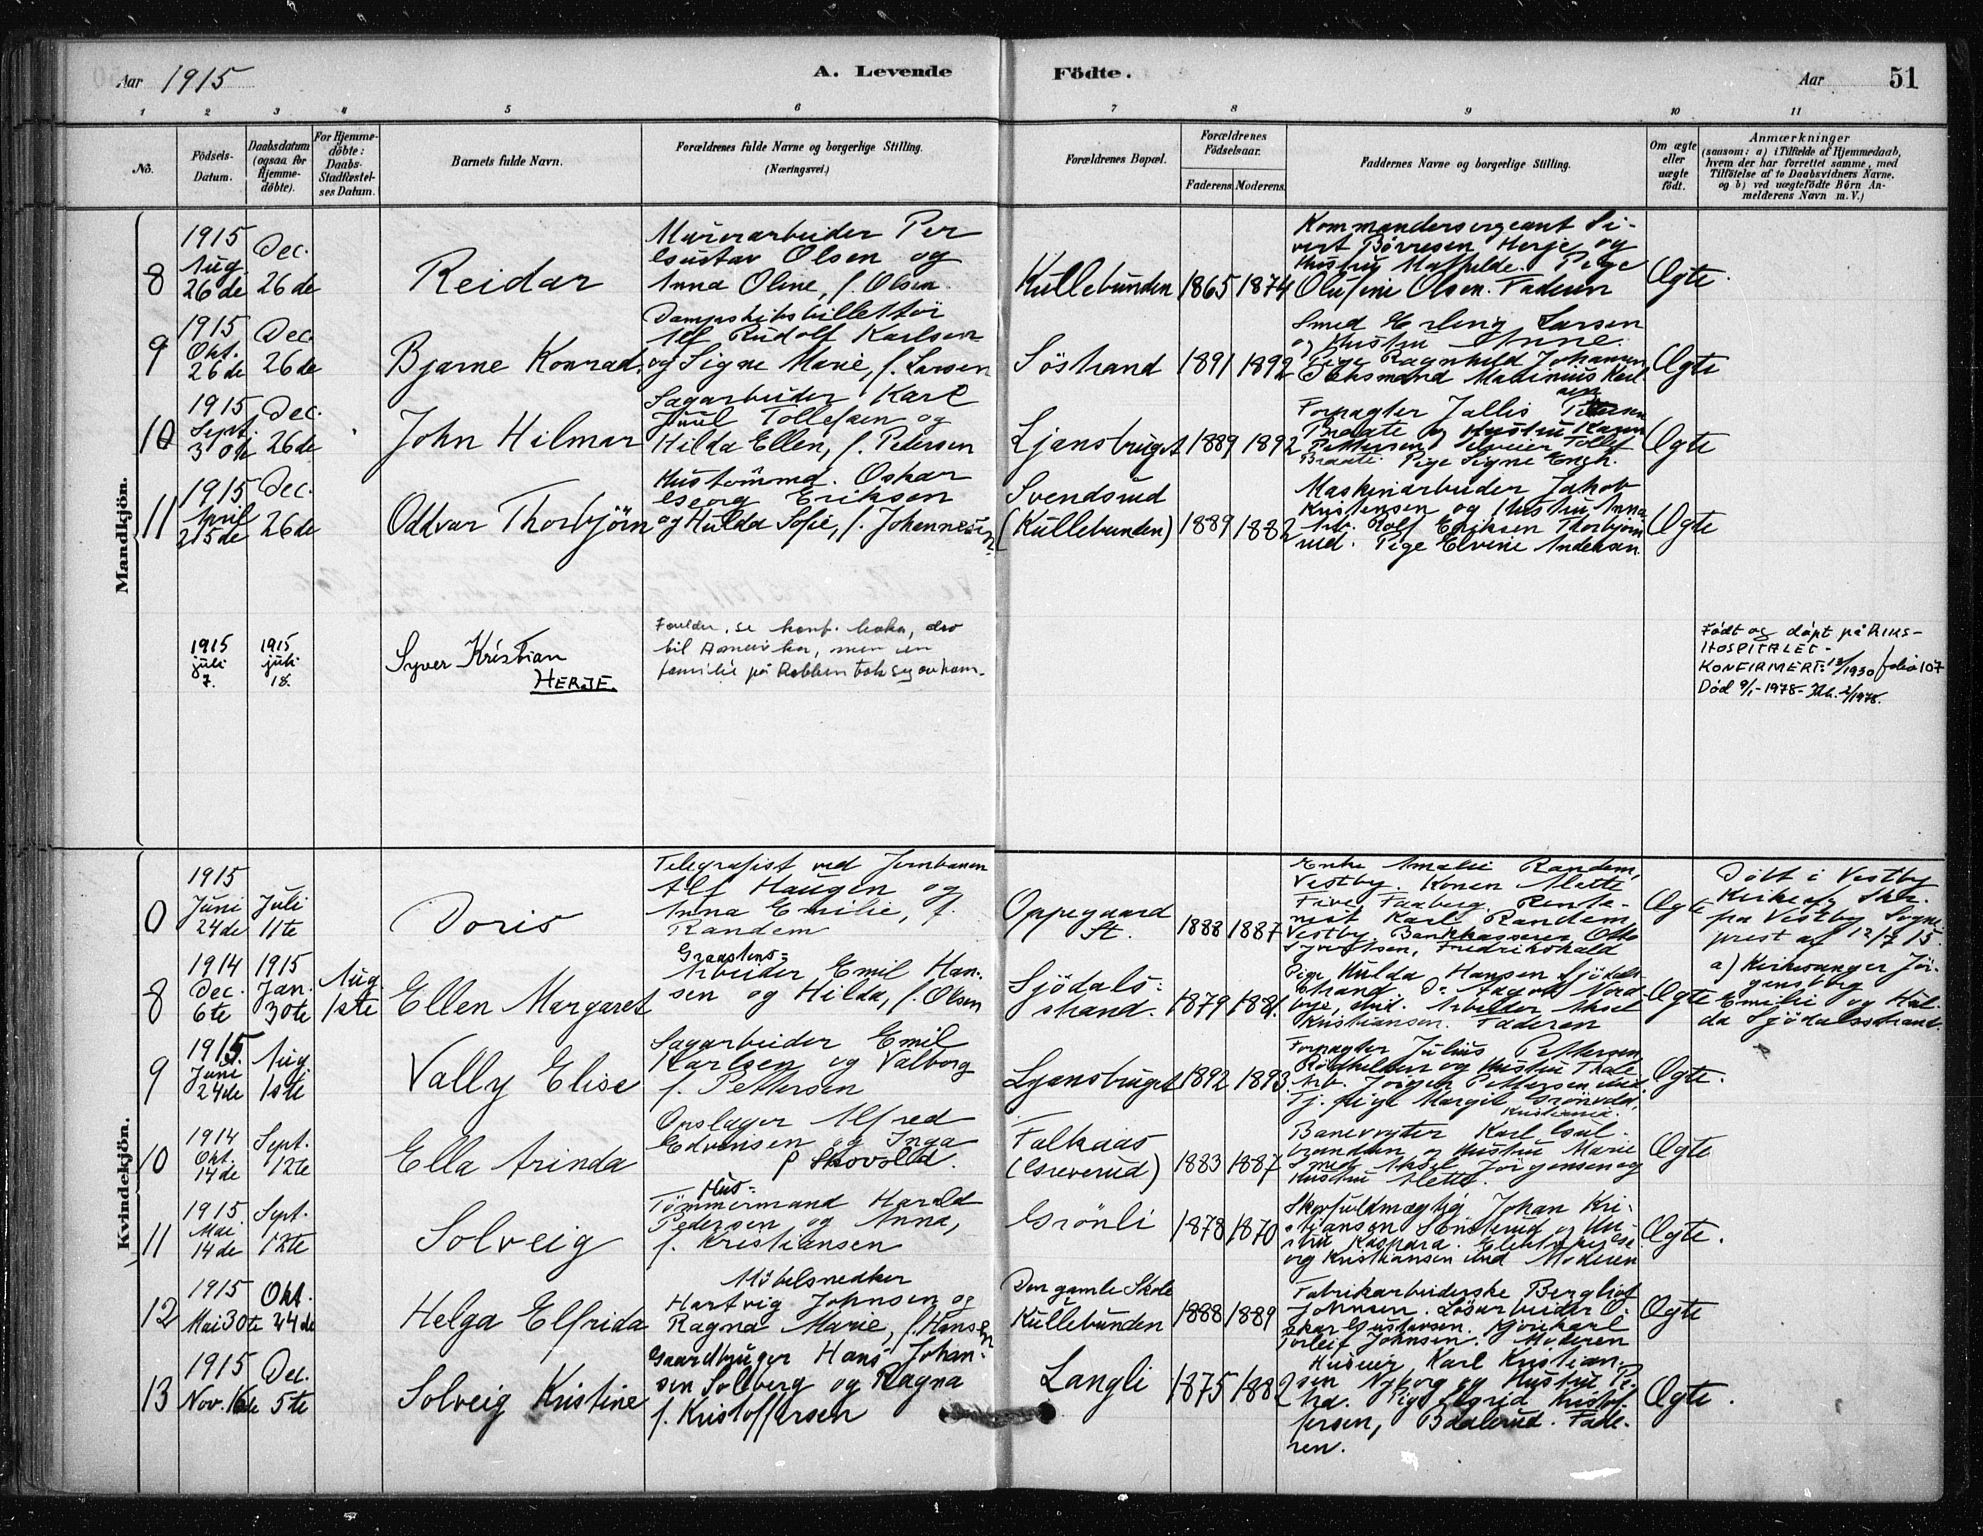 Aar 1915
A. Levende Födte.
Aar 51
1 2 3 4 5 6 7 8 9 10 11
No.
Födsels-Datum.
Daabsdatum (ogsaa for Hjemme-döbte).
For Hjemme-döbte: Daabs-Stadfæstel-ses Datum.
Barnets fulde Navn.
Forældrenes fulde Navne og borgerlige Stilling.
(Næringsvei.)
Forældrenes Bopæl.
Forældrenes Födselsaar.
Faderens. Moderens.
Faddernes Navne og borgerlige Stilling.
Om ægte eller uægte födt.
Anmærkninger
(saasom: a) i Tilfælde af Hjemmedaab,
hvem der har forrettet samme, med
Tilföielse af to Daabsvidners Navne,
og b) ved uægtefödte Börn An-
melderens Navn m. V.)
Mandkjön.
8
1915
Aug.
26de
Dec.
26de
Reidar
Murerarbeider Per
Gustav Olsen og
Anna Oline, f. Olsen.
Kullebunden
1865 1874
Kommandersergeant Si-
vert Børresen Herje og
Hustru Mathilde. Pige
Olufine Olsen. Faderen
Ægte.
9
1915
Okt.
26de
Dec.
26de
Bjarne Konrad
Dampskibsbillettör
Alf Rudolf Karlsen
og Signe Marie, f. Larsen
Söstrand
1891 1892
Smed Erling Larsen
og Hustru Anne.
Pige Ragnhild Johansen
Ægte
10
1915
Sept.
30te
Dec.
26de
John Hilmar
Sagarbeider Karl
Juul Tollefsen og
Hilda Ellen, f. Petersen
Ljansbruget
1889 1892
Forpagter
Braate og Hustru Karen
Pettersen. Tollef
Braate. Pige Signe Engh.
Ægte
11
1915
April
25de
Dec.
26de
Oddvar Thorbjörn
Hustömmd. Oskar
Georg Eriksen
og Hulda Sofie, f. Johannesen.
Svendsrud
(Kullebunden)
1889 1882
Maskinarbeider Jakob
Kristensen og Hustru Anna
Arb. Rolf Eriksen Thorbjörn
rud. Pige Elvine Andersen.
Ægte
1915
juli
7.
1915
juli
18.
Syver Kristian
HERJE.
Forelder, se konf. boka, dro
til Amerika, men en
familie på Kolben tok seg av ham.
Født og døpt på RIKS-
HOSPITALET -
KONFIRMERT: /1930 folio 107
Død 9/1-1978- 2/1978.
Kvindekjön.
0
1915
Juni
24de
Juli
11te
Doris
Telegrafist ved Jernbanen
Alf Haugen og
Anna Emilie, f.
Randem
Oppegaard
St.
1888 1887
Enke Amalie Randem,
Vestby. Konen Alette
Five Faaberg. Rente-
nist Karl Randem,
Vestby. Bankkasserer Otto
Syvertsen, Fredrikshald
Ægte
Döbt i Vestby
Kirke af
fra Vestby Sogne
prest af 12/7 15.
8
1914
Dec.
6te
1915
Jan.
30te
Aug.
1ste
Ellen Margaret
Graastens-
Arbeider Emil Han-
sen og Hilda, f. Olsen
Sjödals-
strand.
1879 1881.
Pige Hulda Hansen Sjödals-
strand. Do Aagot Nord-
bye, Arbeider Aksel
Kristiansen. Faderen
Ægte
a) Kirkesanger Jör-
gensborg
Emilie og Hul-
da Sjödalsstrand.
9
1915
Juni
24de
Aug.
1ste
Vally Elise
Sagarbeider Emil
Karlsen og Valborg
f. Pettersen
Ljansbruget
1892 1893.
Forpagter Julius Pettersen
og Hustru Thale
Arb. Jörgen Pettersen
Tj. pige Margit Grönvold,
Kristiania.
Ægte.
10
1914
Okt.
14de
Sept.
12te
Ella Arinda
Opslager Alfred
Edvensen og Inga
f. Skovold.
Falkaas
(Greverud)
1883 1887
Banevogter Karl Gul-
brandsen og Hustru Marie
Smed Aksel Jörgensen og
Hustru Mette.
Ægte.
11
1915
Mai
14de
Sept.
12te
Solveig
Hus-
Tömmermand Harald
Pedersen og Anna,
f. Kristiansen
Grönli
1878 1870
Skogfuldmægtig Johan Kri-
stiansen Sönsterud og Hu-
stru Kaspara.
Kristiansen Moderen
Ægte.
12
1915
Mai 30te
Okt.
24de
Helga Elfrida
Möbelsnedker
Hartvig Johnsen og
Ragna Marie, f. Hansen
Den gamle Skole
Kullebunden
1888 1889
Fabrikarbeiderske Bergliot
Johnsen. Lösarbeider O-
skar Gustavsen. Kjörekarl
Torleif Johnsen. Moderen
Ægte
13
1915
Nov. 16de
Dec.
5te
Solveig Kristine
Gaardbruger Hans Johan-
sen Solberg og Ragna
f. Kristoffersen
Langli
1875 1882
Huseier Karl Kristian-
sen Nyborg og Hustru Pe-
tra. Pige Sigrid Kristof-
fersen, Baalerud. Fade-
ren.
Ægte.